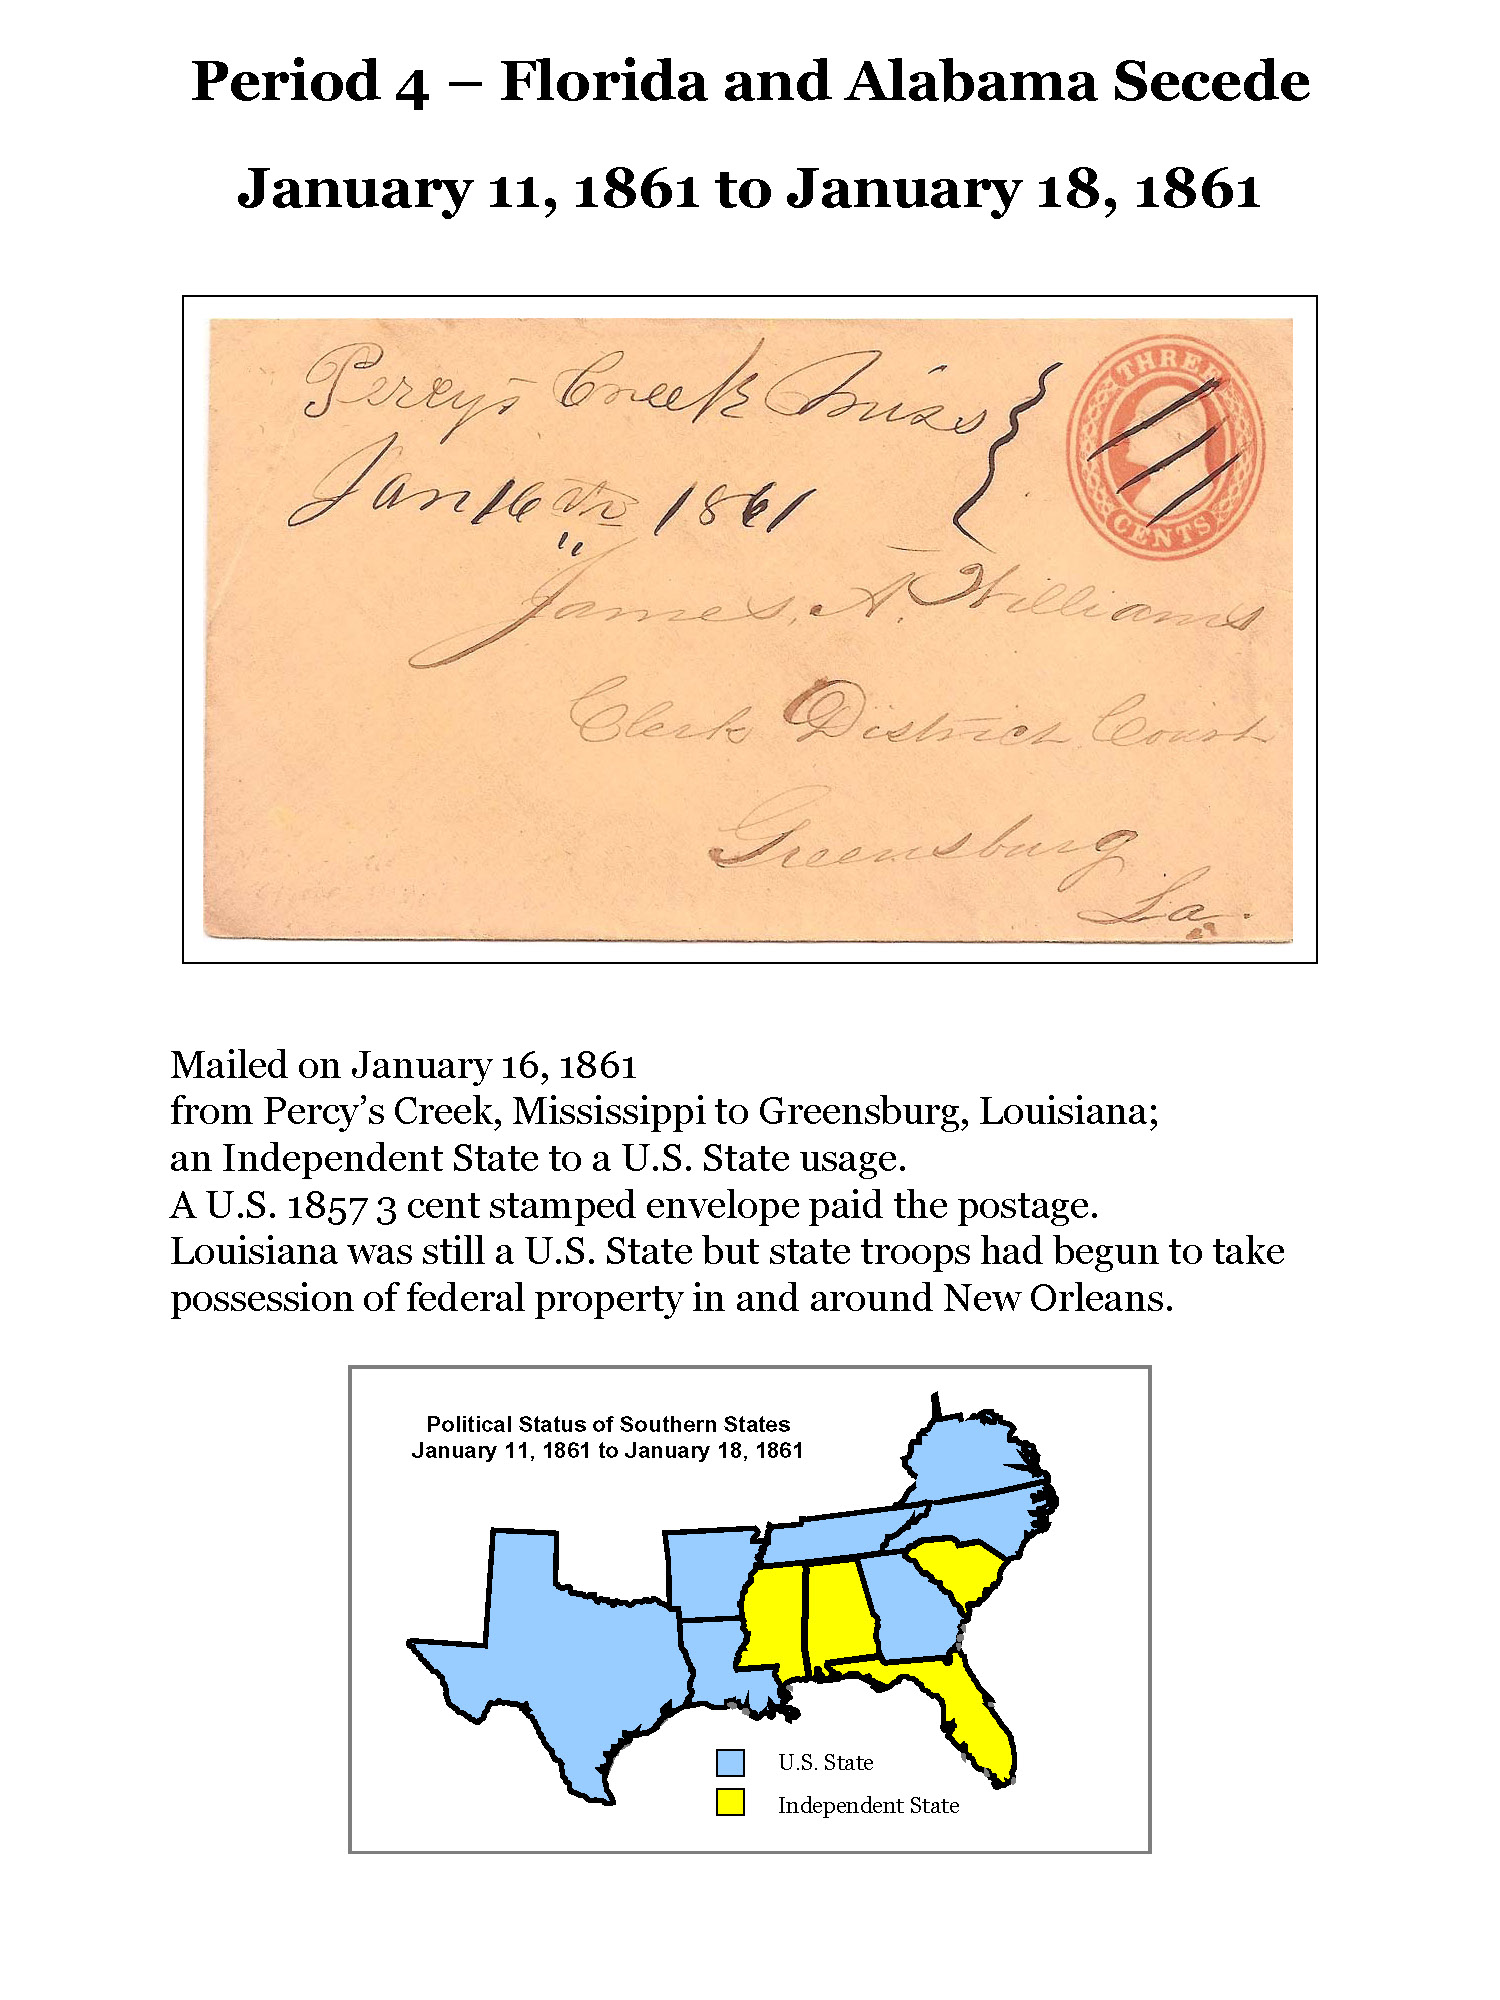 Period 4 – Florida and Alabama Secede
January 11, 1861 to January 18, 1861
Percys Creek Miss
THREE
CENTS
Jan 16th 1861
James. A. Williams
Clerk District Court
Greensburg
La.
Mailed on January 16, 1861
from Percy’s Creek, Mississippi to Greensburg, Louisiana;
an Independent State to a U.S. State usage.
A U.S. 1857 3 cent stamped envelope paid the postage.
Louisiana was still a U.S. State but state troops had begun to take
possession of federal property in and around New Orleans.
Political Status of Southern States
January 11, 1861 to January 18, 1861
U.S. State
Independent State